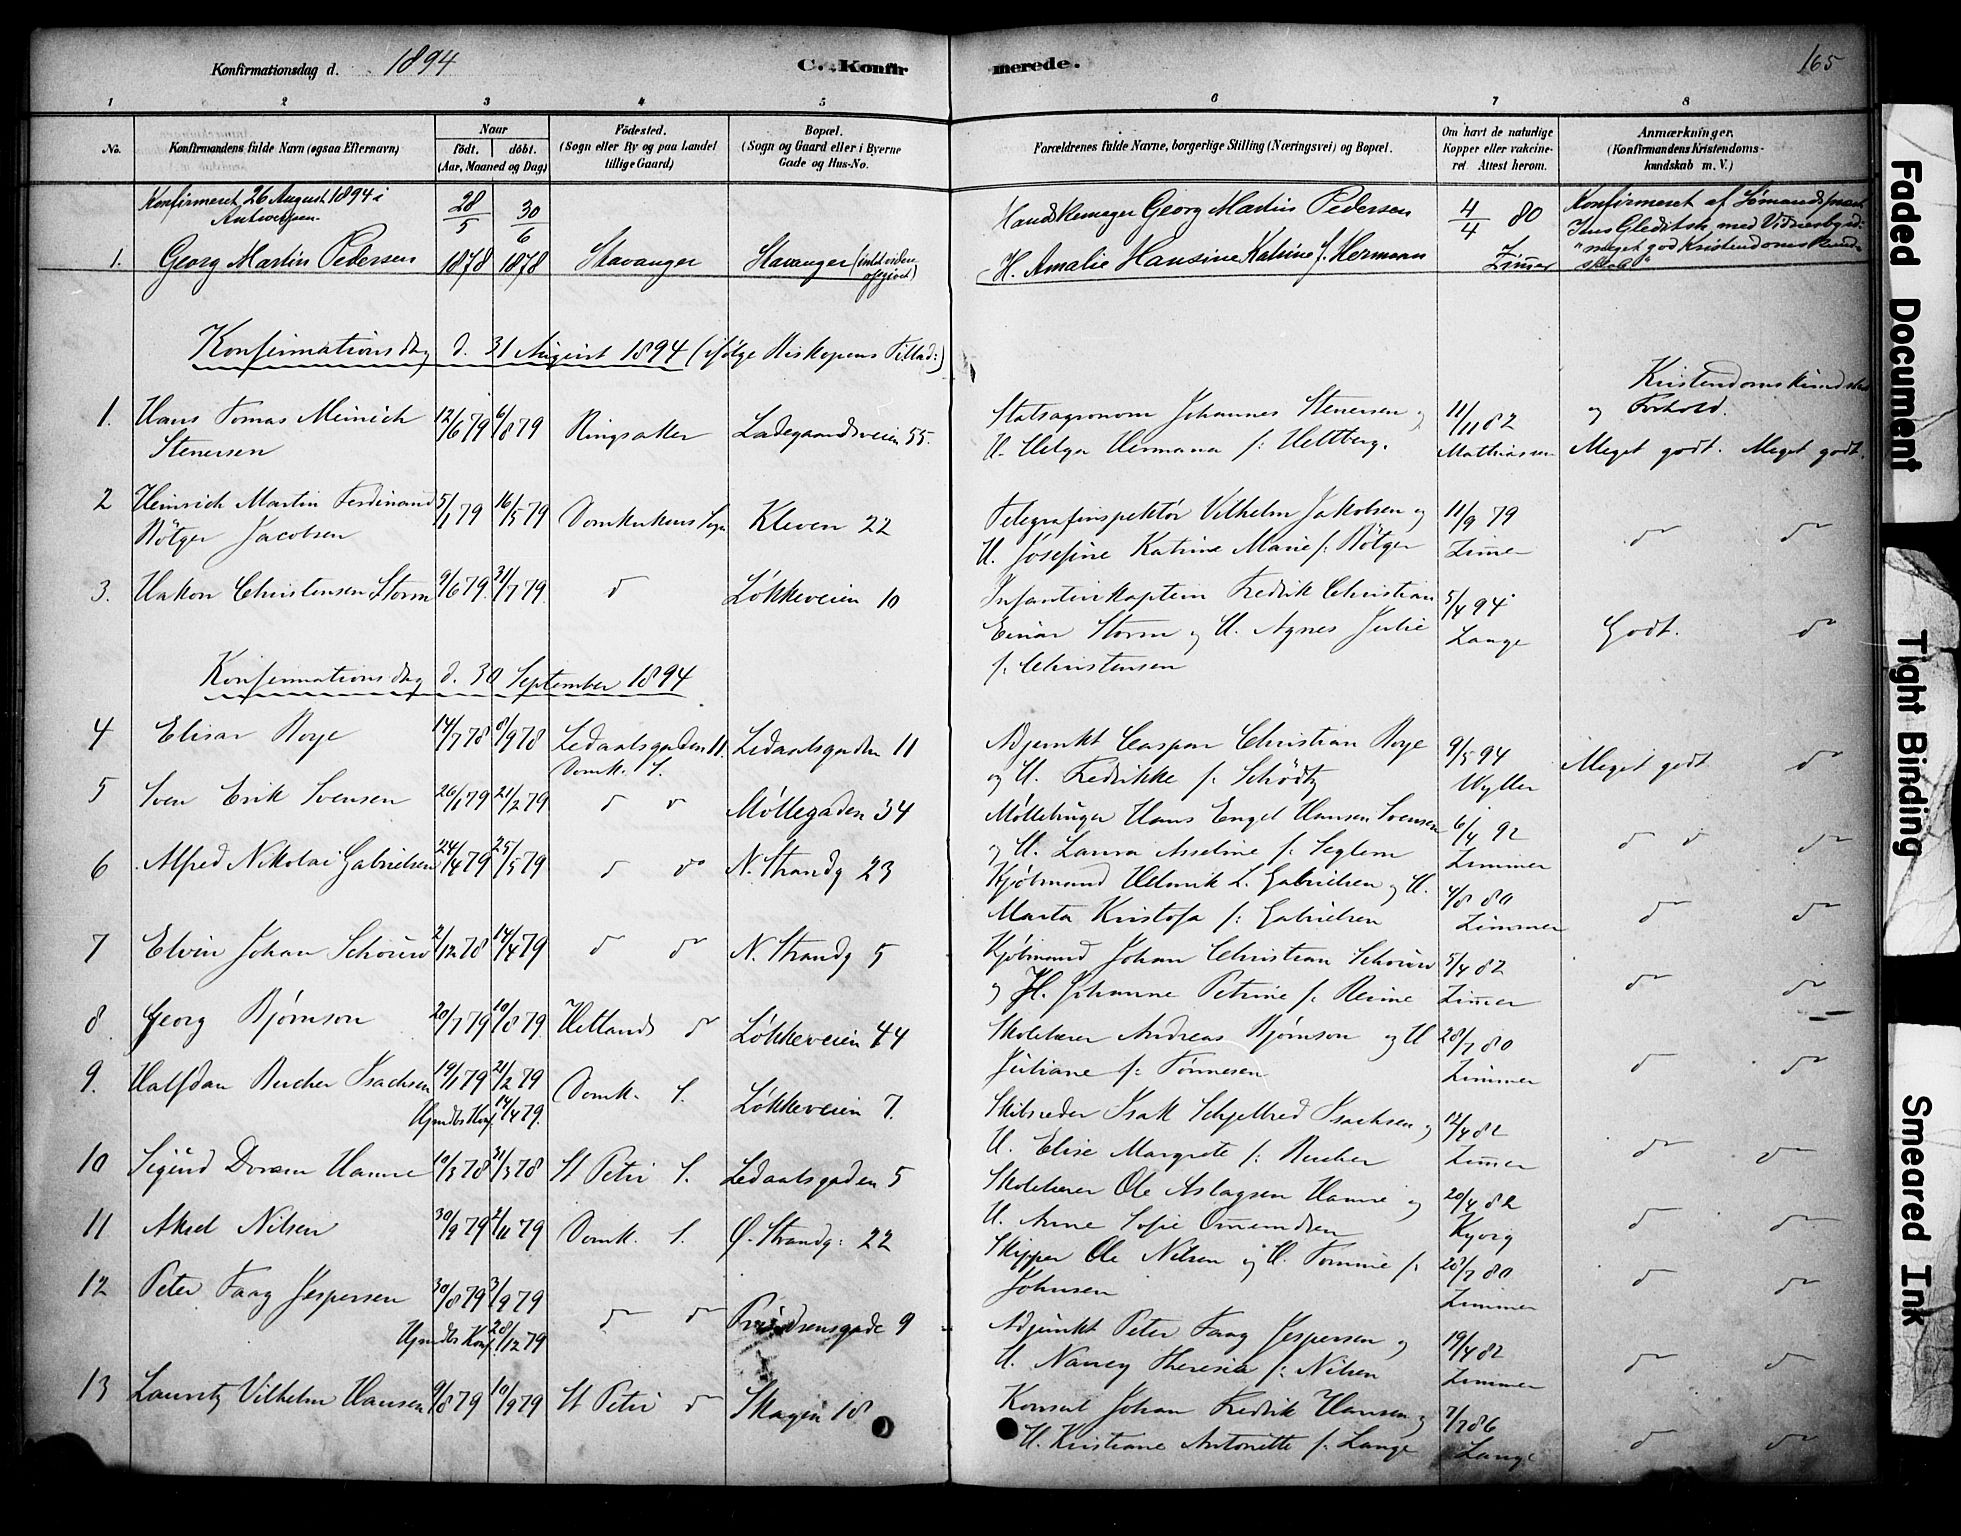 Konfirmationsdag d. 1894
C. Konfir merede.
165
1 2 3 4 5 6 7 8
No.
Konfirmandens fulde Navn (ogsaa Efternavn)
Naar
født. døbt.
(Aar, Maaned og Dag)
Fødested.
(Sogn eller By og paa Landet
tillige Gaard)
Bopæl.
(Sogn og Gaard eller i Byerne
Gade og Hus-No.
Forældrenes fulde Navne, borgerlige Stilling (Næringsvei) og Bopæl.
Om havt de naturlige
Kopper eller vakcine-
ret Attest herom.
Anmærkninger.
(Konfirmandens Kristendoms-
kundskab m. V.)
Konfirmeret 26 August 1894 i
Antwerpen.
1. Georg Martin Pedersen 28/5 1878 30/6 1878 Stavanger Stavanger
Georg Martin Pedersen
H. Amalie Hansine Katrine f. Hermann
4/4 80
Zimer
Konfirmeret af Sømandspræst
Jens Gleditsch med Vidnesbyrd:
"meget god Kristendomskund-
skab"
Konfirmationsdag d. 31 August 1894 (ifølge Biskopens Tillad:)
Kristendomskundskab
og Forhold.
1. Hans Tomas Meinich 12/6 79 6/8 79 Ringsaker Ladegaardsveien 55.
Stenersen
Statsagronom Johannes Stenersen og
H. Helga Hermana f: Heltberg.
11/11 82
Mathiasen
Meget godt. Meget godt.
2 Heinrich Martin Ferdinand 5/1 79 16/5 79 Domkirkens Sogn Kleven 22
Rötger Jacobsen
Telegrafinspektør Vilhelm Jakobsen og
H. Josefine Katrine Marie f: Rötger
11/9 79
Zimer
do do
3. Hakon Christensen Storm 9/6 79. 31/7 79. do Løkkeveien 10
Infanterikaptein Fredrik Christian
Einar Storm og H. Agnes Julie
f: Christensen
5/4 94
Lange
Godt. do
Konfirmationsdag d. 30 September 1894
4 Elisar Roye 14/7 78 8/9 78 Ledaalsgaden 11. Ledaalsgaden 11
Domk. S.
Adjunkt Caspar Christian Roye
og H. Fredrikke f: Schödtz
9/5 94
Wyller
Meget godt do
5 Sven Erik Svensen 26/1 79 21/2 79 do do Møllegaden 34
Møllebruger Hans Engel Hansen Svensen
og H. Laura Asseline f: Seglem
6/4 92
Zimmer
do do do
6 Alfred Nikolai Gabrielsen 24/4 79 25/5 79 do do N. Strandg 23
Kjøbmand Helmik L. Gabrielsen og H.
Marta Kristofa f: Gabrielsen
4/8 80
Zimmer
do do
7 Elvin Johan Schouw 2/12 78 14/4 79 do do N. Strandg 5
Kjøbmand Johan Christian Schouw
og H. Johanne Petrine f: Reime
5/4 82
Zimer
do do
8. Georg Bjørnson 20/7 79 10/8 79. Hetlands do Løkkeveien 44
Skolelærer Andreas Bjørnson og H
Juliane f: Tønnesen
28/7 80
Zimmer
do do
9. Halfdan Bucher Isachsen 19/1 79 21/2 79 Domk. S. Løkkeveien 7.
Hjmdbt Konf. 14/4 79.
Skibsreder Isak Schjelbred Isachsen og
H. Elise Margrete f: Bucher
12/4 82
Zimer
do do
10 Sigurd Hamre 10/3 78 31/3 78 St Petri S. Ledaalsgaden 5
Skolelærer Ole Aslagsen Hamre og
H. Anne Sofie
20/4 82
do do
11 Aksel Nilsen 30/9 79 2/11 79 Domk. S. Ø. Strandg: 22
Skipper Ole Nilsen og H. Tomine f:
Johnsen
28/7 80
Zimmer
do do
12 Peter Faag Jespersen 30/8 79 3/9 79 do do 9
Hjmdbt Konf. 28/12 79
Adjunkt Peter Faag Jespersen og
H. Nancy Theresia f: Nilsen
19/4 82
Zimmer
do do
13 Lauritz Vilhelm Hansen 9/8 79 10/9 79 St Petri do Skagen 18
Konsul Johan Fredrik Hansen og
H. Kristiane Antonette f: Lange
7/7 86
Lange
do do
Faded Document
Tight Binding
Smeared Ink